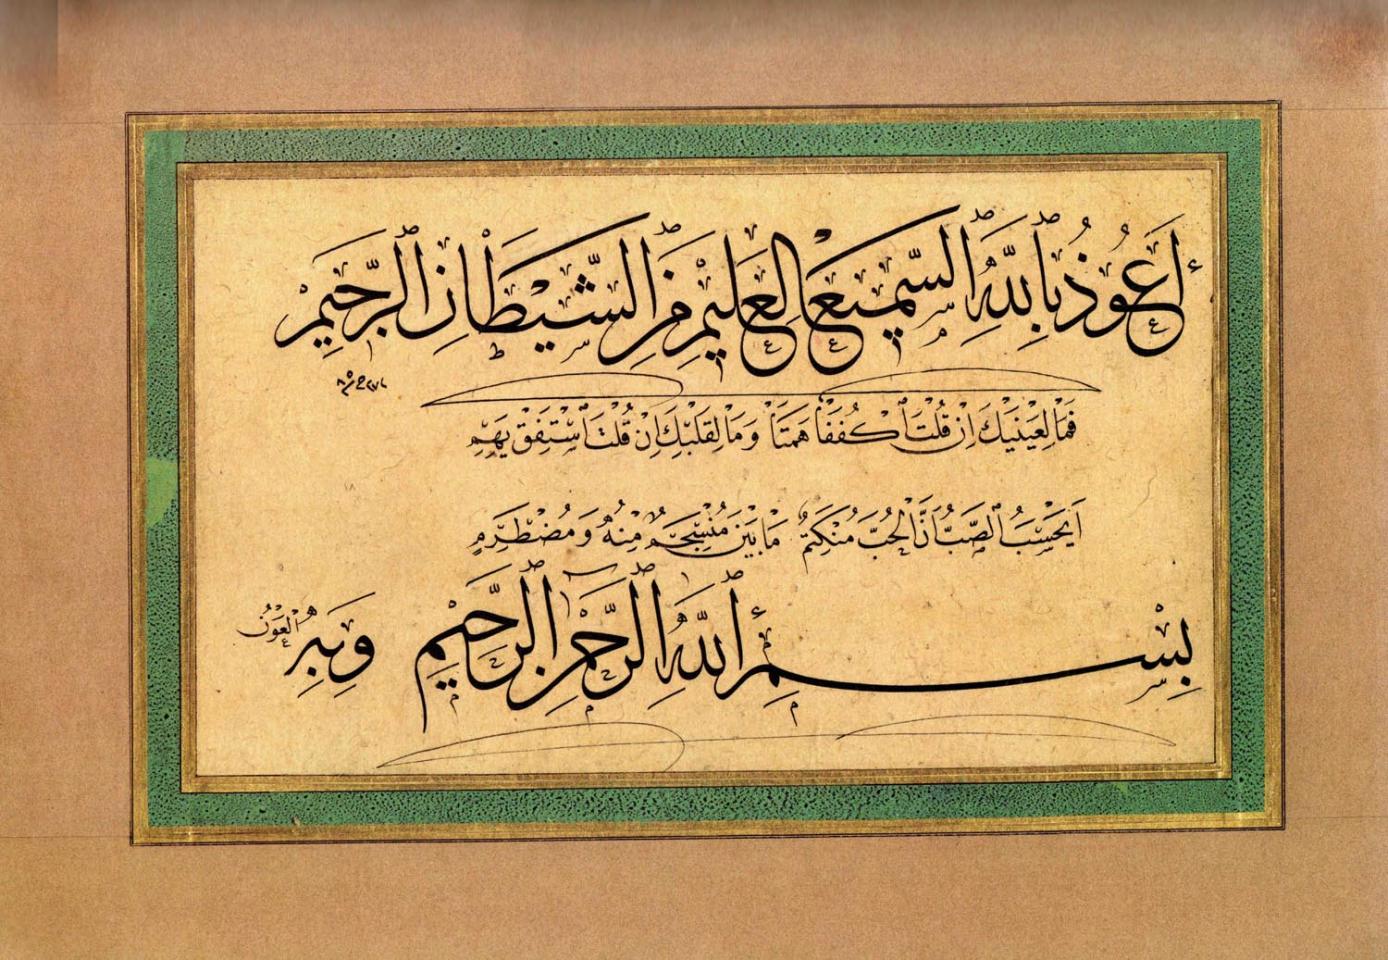 أَعُوذُ بِٱللَّهِ ٱلسَّمِيعِ ٱلْعَلِيمِ مِنَ ٱلشَّيْطَانِ ٱلرَّجِيمِ
فَمَا لِعَيْنَيْكَ اِنْ قُلْتَ ٱكْفُفَا هَمَتَا وَمَا لِقَلْبِكَ اِنْ قُلْتَ ٱسْتَفِقْ يَهِمِ
اَيَحْسَبُ ٱلصَّبُّ اَنَّ الْحُبَّ مُنْكَتِمٌ مَا بَيْنَ مُنْسَجِمٍ مِنْهُ وَمُضْطَرِمِ
بِسْمِ ٱللَّهِ ٱلرَّحْمٰنِ ٱلرَّحِيمِ وَبِهِ ٱلْعَوْنُ